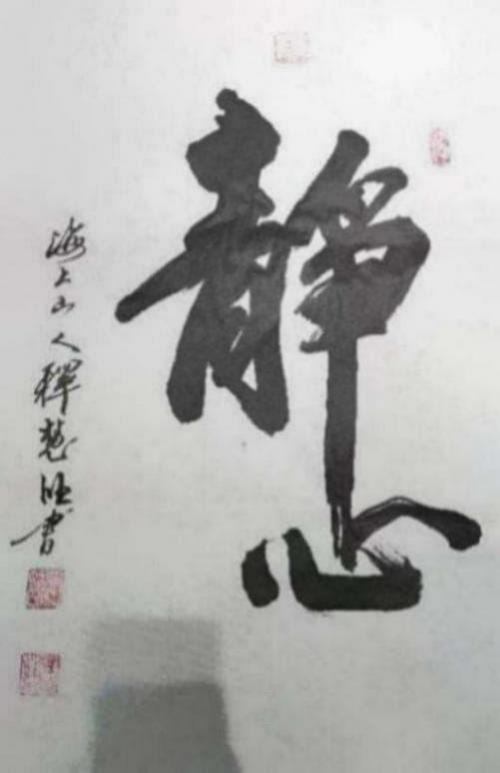 静心
海上山人释慧旺书